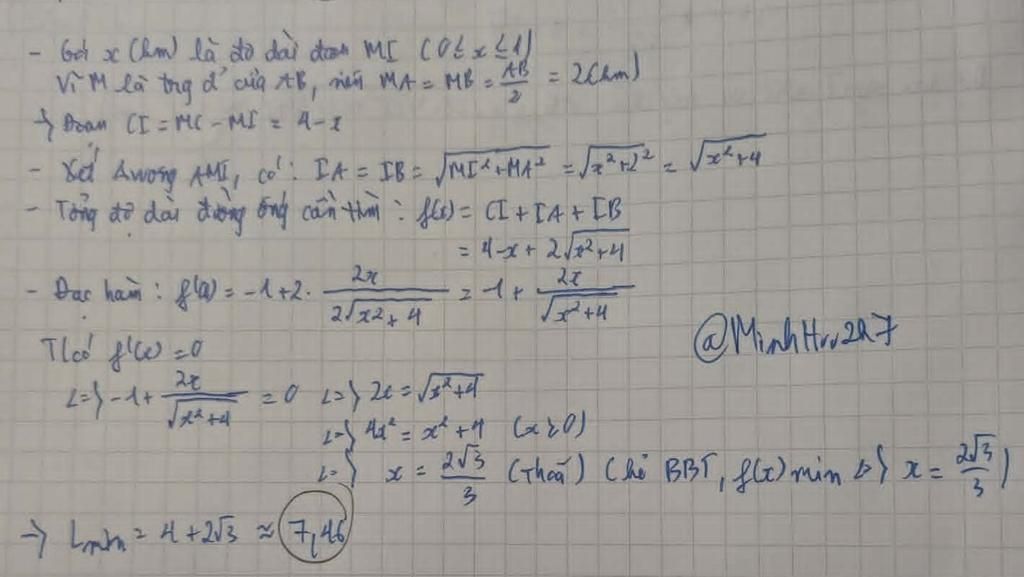 - Gọi x (km) là độ dài đoạn MI (0 ≤ x ≤ 4)
Vì M là trg đ' của AB, nên MA = MB = AB/2 = 2(km)
→ Đoạn CI = MC - MI = 4 - x
- Xét Δvuông AMI, có: IA = IB = √(MI² + MA²) = √(x² + 2²) = √(x² + 4)
- Tổng độ dài đường ống cần tìm: f(x) = CI + IA + IB
= 4 - x + 2√(x² + 4)
- Đạo hàm: f'(x) = -1 + 2 · 2x/(2√(x² + 4)) = -1 + 2x/√(x² + 4)
f'(x) = 0
@MinhHrv2k7
<=> -1 + 2x/√(x² + 4) = 0 <=> 2x = √(x² + 4)
<=> 4x² = x² + 4 (x ≥ 0)
<=> x = 2√3/3 (Thoả) BBT, f(x) min <=> x = 2√3/3
→ Lmin = 4 + 2√3 ≈ 7,46